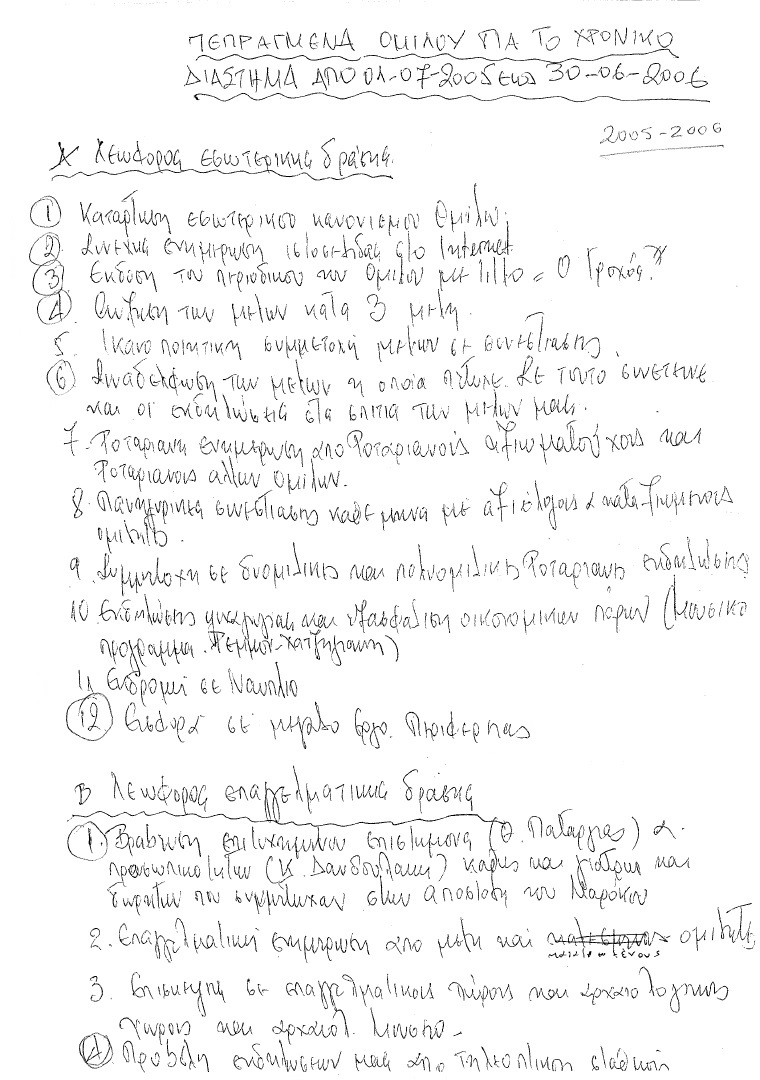 ΠΕΠΡΑΓΜΕΝΑ ΟΜΙΛΟΥ ΓΙΑ ΤΟ ΧΡΟΝΙΚΟ
ΔΙΑΣΤΗΜΑ ΑΠΟ 01-07-2005 ΕΩΣ 30-06-2006
2005-2006
Λεωφορος εσωτερικης δράσης
① Καταρτιση εσωτερικου κανονισμου Ομιλου.
2. Συνεχης ενημερωση ιστοσελιδας στο Internet
③ Εκδοση του περιοδικου του Ομιλου με τιτλο = Ο Τροχός."
④ Αυξηση των μελων κατα 3 μελη.
5. Ικανοποιητικη συμμετοχή μελων σε συνεστιασης.
⑥ Συναδελφωση των μελων η οποια πετυχε. Σε τουτο συνετεινε
και οι εκδηλωσεις στα σπιτια των μελων μας.
7. Ροταριανη ενημερωση απο Ροταριανούς αξιωματούχους και
Ροταριανους αλλων ομιλων.
8. Πανηγυρικες συνεστιασης καθε μηνα με αξιόλογους & καταξιωμενους
ομιλητες.
9. Συμμετοχη σε δυομιλικες και πολυομιλικες Ροταριανες εκδηλωσεις
10 Εκδηλωσης ψυχαγωγιας και εξασφαλιση οικονομικων πορων (Μουσικο
προγραμμα. -Χατζηγιαννη)
11 Εκδρομή σε Ναυπλιο
⑫ Εισφορά σε μεγαλο εργο. Περιφερειας
Β Λεωφορος επαγγελματικης δράσης
① Βραβευση επιτυχημενου επιστημονα (Θ. Παταργιας) &
προσωπικοτητων (Κ. Δανδουλακη) καθως και γιατρων και
που συμμετειχαν στην αποστολη του Μαρόκου
2. Επαγγελματική ενημερωση απο μελη και ομιλητές
3. Επισκεψη σε επαγγελματικους χώρους και αρχαιολογικους
χωρους και αρχαιολ. Μουσειο -
④ Προβολη εκδηλωσεων μας απο τηλεοπτικη σταθμού